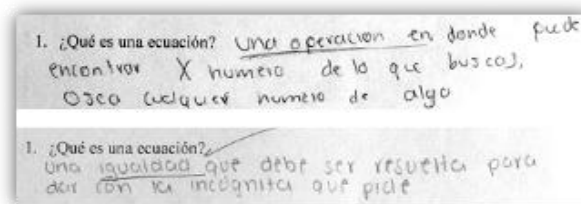 1. ¿Qué es una ecuación? Una operación en donde puede
encontrar X numero de lo que buscas,
Osea cualquier numero de algo
1. ¿Qué es una ecuación?
una igualdad que debe ser resuelta para
dar con la incógnita que pide